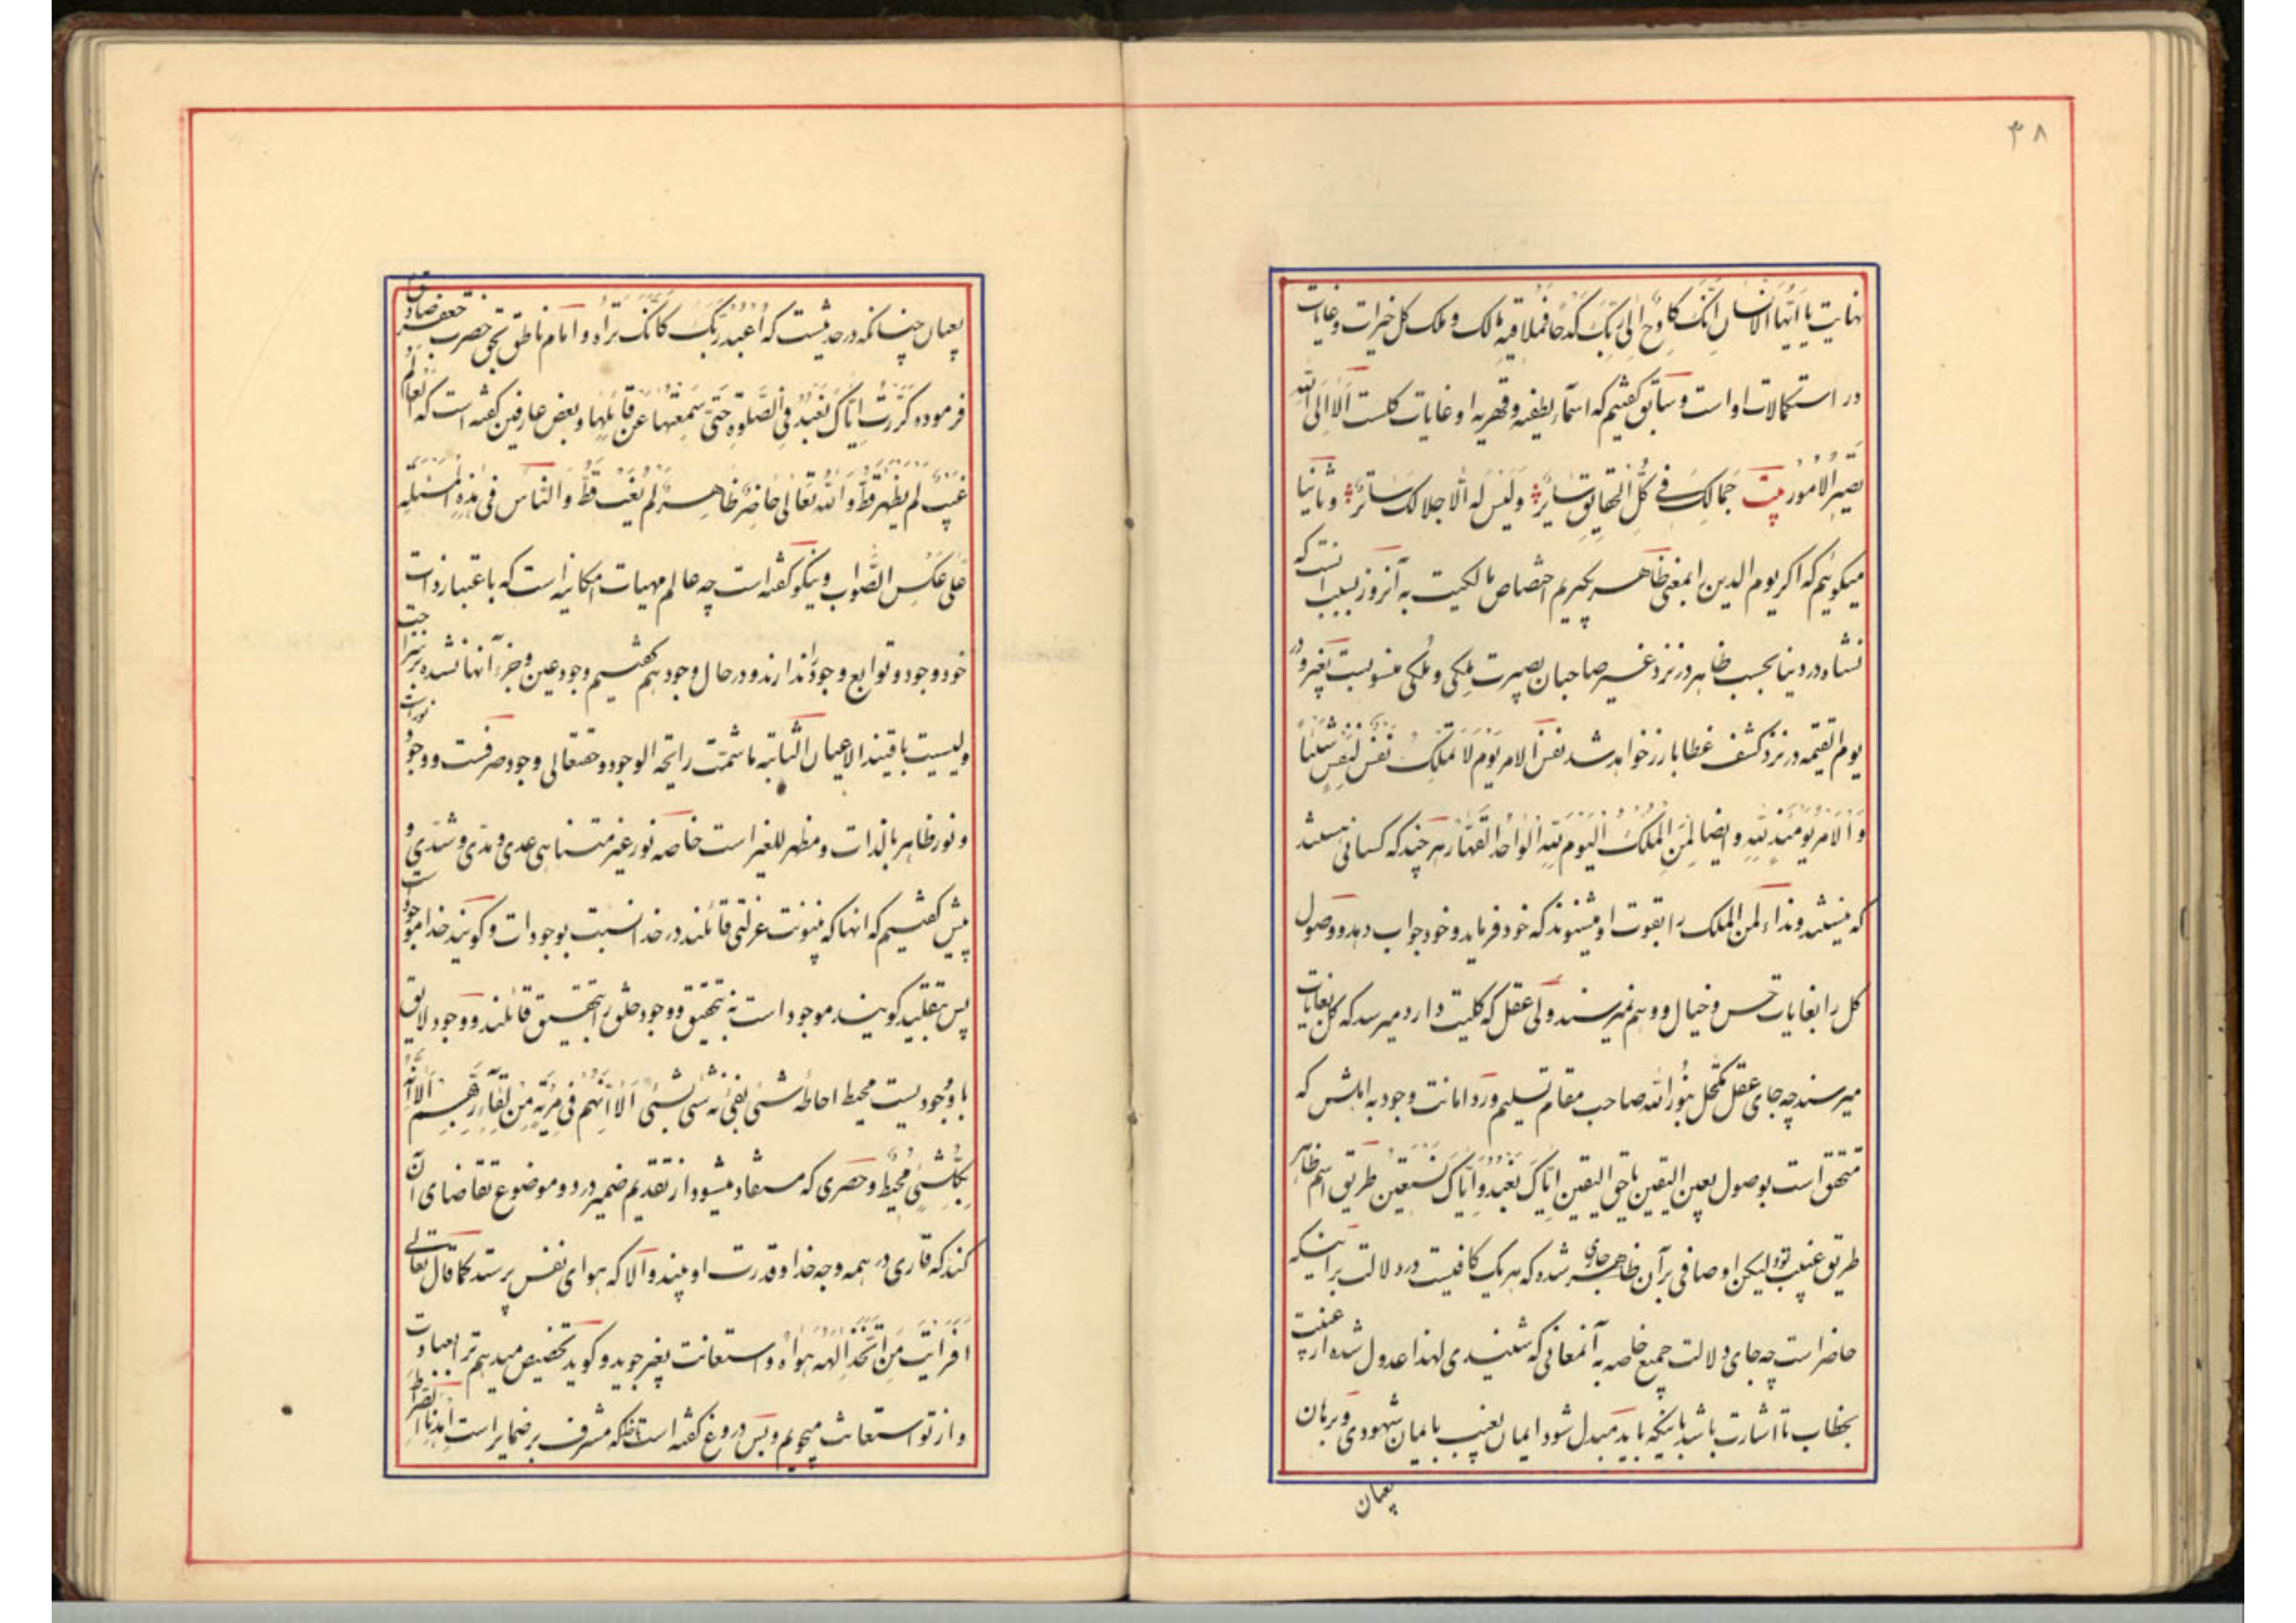 ۳۸
نهایت یا ایها الانسان انک کادح الی ربک کدحا فملاقیه مالک و ملک کل خیرات و غایات
در استکمالات او است و سابق کفتیم که اسمآء لطفیه و قهریه او غایات کلست اَلا اِلی الله
تصیر الامور بیت جمالک فی کل الحقایق سایر ولیس له الا جلالک ساتر و ثانیا
میکوئیم که اکر یوم الدین را بمعنی ظاهر بکیریم اختصاص مالکیت به آنروز بسبب انست که
نشاه در دنیا بحسب ظاهر در نزد غیر صاحبان بصیرت مِلکی و مُلکی منسوبست بغیر و در
یوم القیمه در نزد کشف غطا بارز خواهد شد نفس الامر یوم لا تملک نفس لنفس شیئا
و الامر یومئذ لله و ایضا لمن الملک الیوم لله الواحد القهار هرچند که کسانی هستند
که نیستند و نداء لمن الملک را بقوت او میشنوند که خود فرماید و خود جواب دهد و وصول
کل را بغایات حس و خیال و وهم نمیرسند ولی عقل که کلیت دارد میرسد که کل بغایات
میرسند چه جای عقل مکتحل بنور الله صاحب مقام تسلیم و رد امانت وجود به اهلش که
متحقق است بوصول بعین الیقین یا حق الیقین ایاک نعبد و ایاک نستعین طریق اسم ظاهر
طریق غیبت بود لیکن اوصافی بر آن ظاهر جاری شده که هر یک کافیست در دلالت بر اینکه
حاضر است چه جای دلالت جمیع خاصه به آنمعانی که شنیدی لهذا عدول شده از غیبت
بخطاب تا اشارت باشد باینکه باید مبدل شود ایمان بغیب بایمان شهودی و برهان
بعیان
بعیان چنانکه در حدیثست که اُعبد ربک کانک تراه و امام ناطق بحق حضرت جعفر صادق
فرموده کررت ایاک نعبد فی الصلوة حتی سمعتها عن قائلها و بعض عارفین کفته است که العالم
غیب لم یظهر قط و الله تعالی حاضر ظاهر لم یغب قط و الناس فی هذه المسئله
علی عکس الصواب و نیکو کفته است چه عالم مهیات امکانیه است که باعتبار ذات
خود وجود و توابع وجود را ندارند و در حال وجود هم کفتیم وجود عین و جزء آنها نشده
و لیسیت باقیند الاعیان الثابته ما شمت رائحه الوجود و حقتعالی وجود صرفست و وجود
و نور ظاهر بالذات و مظهر للغیر است خاصه نور غیر متناهی عدی و مدی و شدی و
پیش کفتیم که انها که بینونت عزلتی قائلند در خدا نسبت بوجودات و کویند خدا موجود است
پس بتقلید کویند موجود است نه بتحقیق و وجود خلق را بتحقیق قائلند و وجود لایق
با وجودیست محیط احاطه شئی بفئ نه شئی بشئی الا انهم فی مریة من لقاء ربهم الا انه
بکل شئی محیط و حصری که مستفاد میشود از تقدیم ضمیر در دو موضوع تقاضای آن
کند که قاری در همه وجه خدا و قدرت او بیند و اَلا که هوای نفس پرستد کما قال تعالی
افرایت من اتخذ الهه هواه و استعانت بغیر جوید و کوید تخصیص میدهیم ترا بعبادت
و از تو استعانت میجویم و بس دروغ کفته است بانکه مشرف بر ضمایر است اهدنا الصراط